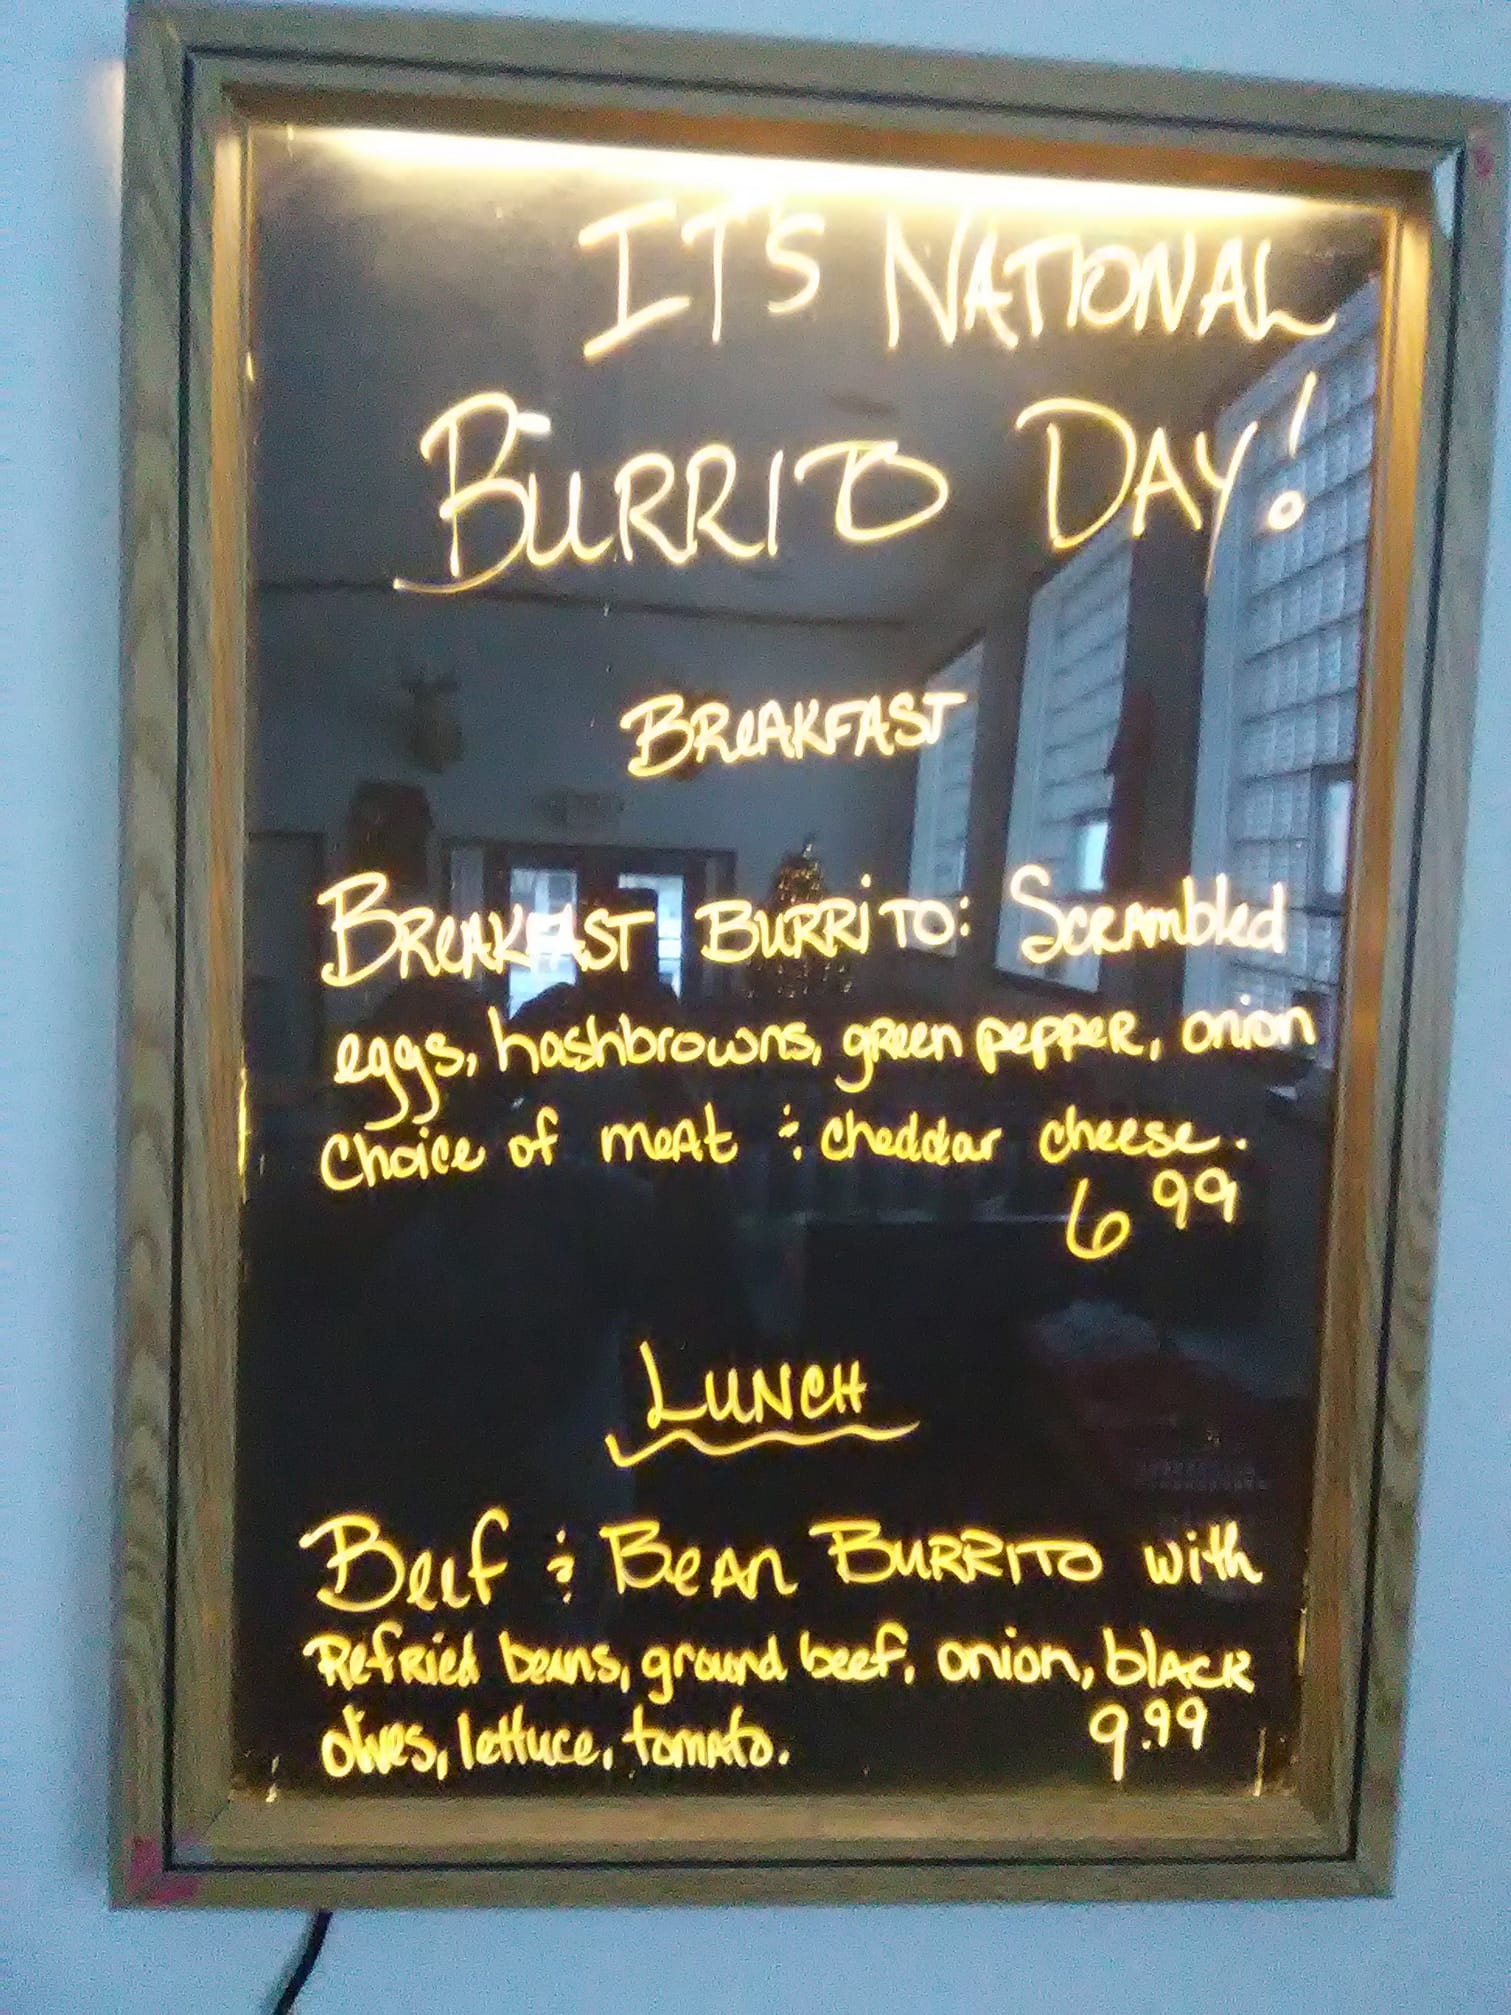 IT'S NATIONAL
BURRITO DAY!
BREAKFAST
BREAKFAST BURRITO: Scrambled
eggs, hashbrowns, green pepper, onion
Choice of meat & cheddar cheese.
6 99
LUNCH
Beef & Bean BURRITO with
Refried beans, ground beef, onion, black
olives, lettuce, tomato. 9.99